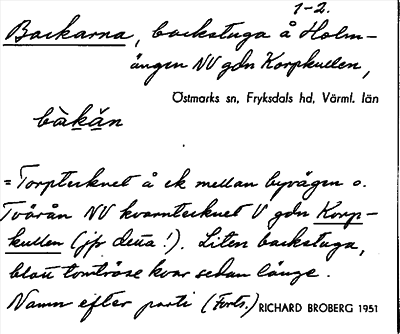 1-2.
Backarna, backstuga å Holm-
ängen NV gdn Korpkullen,
Östmarks sn, Fryksdals hd, Värml. län
bàkăn
= Torptecknet å ek mellan byvägen o.
Tvärån NV kvarntecknet V gdn Korp-
kullen (jfr detta!). Liten backstuga,
blott tomtröse kvar sedan länge.
Namn efter parti (Forts.) RICHARD BROBERG 1951